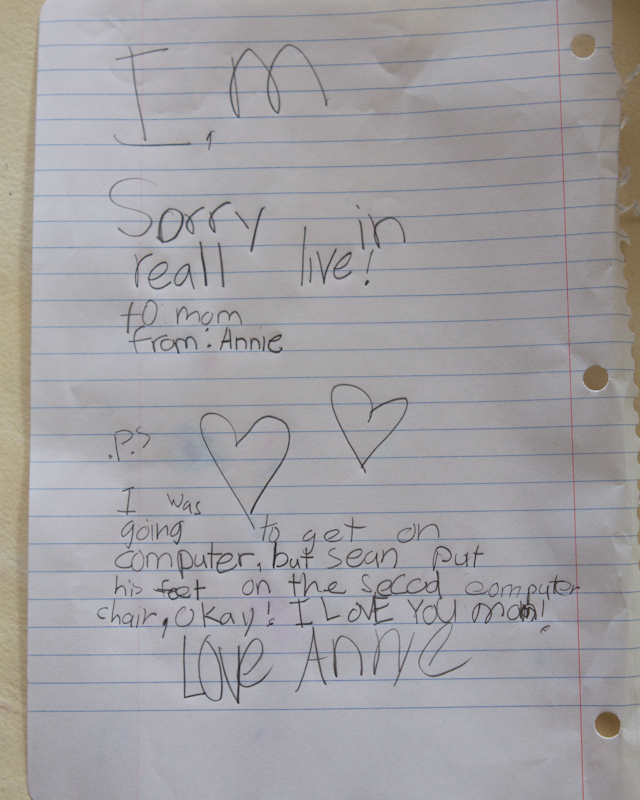 I,m
Sorry in
reall live!
to mom
from: Annie
.P.S
I was
going to get on
computer, but sean put
his feet on the secod computer
chair, okay! I LOVE YOU mom!
LOVE Annie